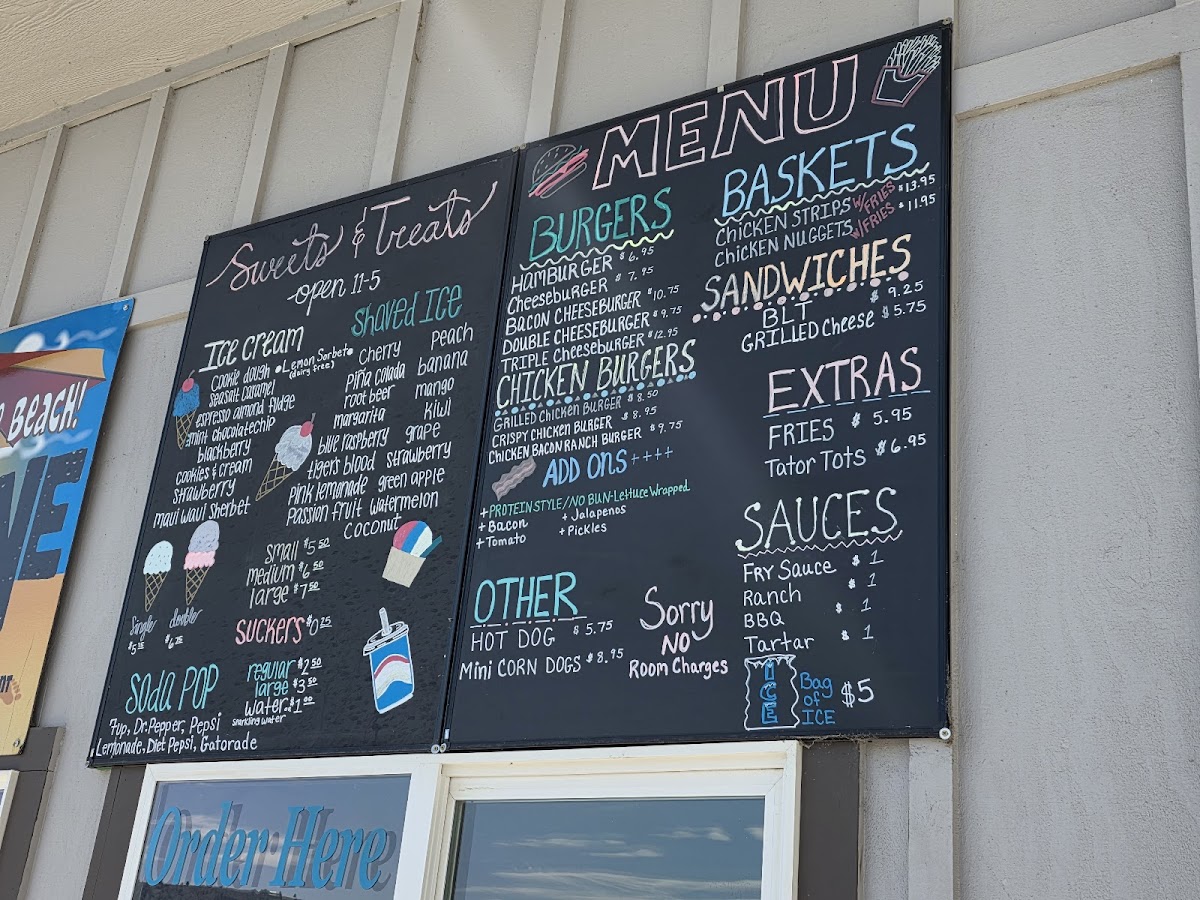 BEACH!
VE
Sweets & Treats
open 11-5
Ice cream
Cookie dough
seasalt caramel
espresso almond fudge
mint chocolate chip
blackberry
cookies & cream
strawberry
maui waui sherbet
• Lemon Sorbet
(dairy free)
Single double
$6.75
Shaved Ice
Cherry Peach
Piña colada banana
root beer mango
margarita Kiwi
blue raspberry grape
tigers blood strawberry
Pink lemonade green apple
Passion fruit watermelon
Coconut
Small $5.50
medium $6.50
large $7.50
SUCKERS $0.25
Soda POP
regular $2.50
large $3.50
water $1.00
Sparkling water
7up, Dr. Pepper, Pepsi
Lemonade, Diet Pepsi, Gatorade
MENU
BURGERS
HAMBURGER $6.95
Cheeseburger $7.95
BACON CHEESEBURGER $10.75
DOUBLE CHEESEBURGER $9.75
TRIPLE Cheeseburger $12.95
CHICKEN BURGERS
GRILLED CHICKEN BURGER $8.50
CRISPY CHICKEN BURGER $8.95
CHICKEN BACON RANCH BURGER $9.75
ADD ONS ++++
+ PROTEIN STYLE//NO BUN-Lettuce Wrapped
+ Bacon + Jalapenos
+ Tomato + Pickles
OTHER
HOT DOG $5.75
Mini CORN DOGS $8.95
Sorry
NO
Room Charges
BASKETS
CHICKEN STRIPS W/ FRIES $13.95
CHICKEN NUGGETS W/ FRIES $11.95
SANDWICHES
BLT $9.25
GRILLED Cheese $5.75
EXTRAS
FRIES $5.95
Tator Tots $6.95
SAUCES
FRY Sauce $1
Ranch $1
BBQ $1
Tartar $1
ICE
Bag
of
ICE
$5
Order Here